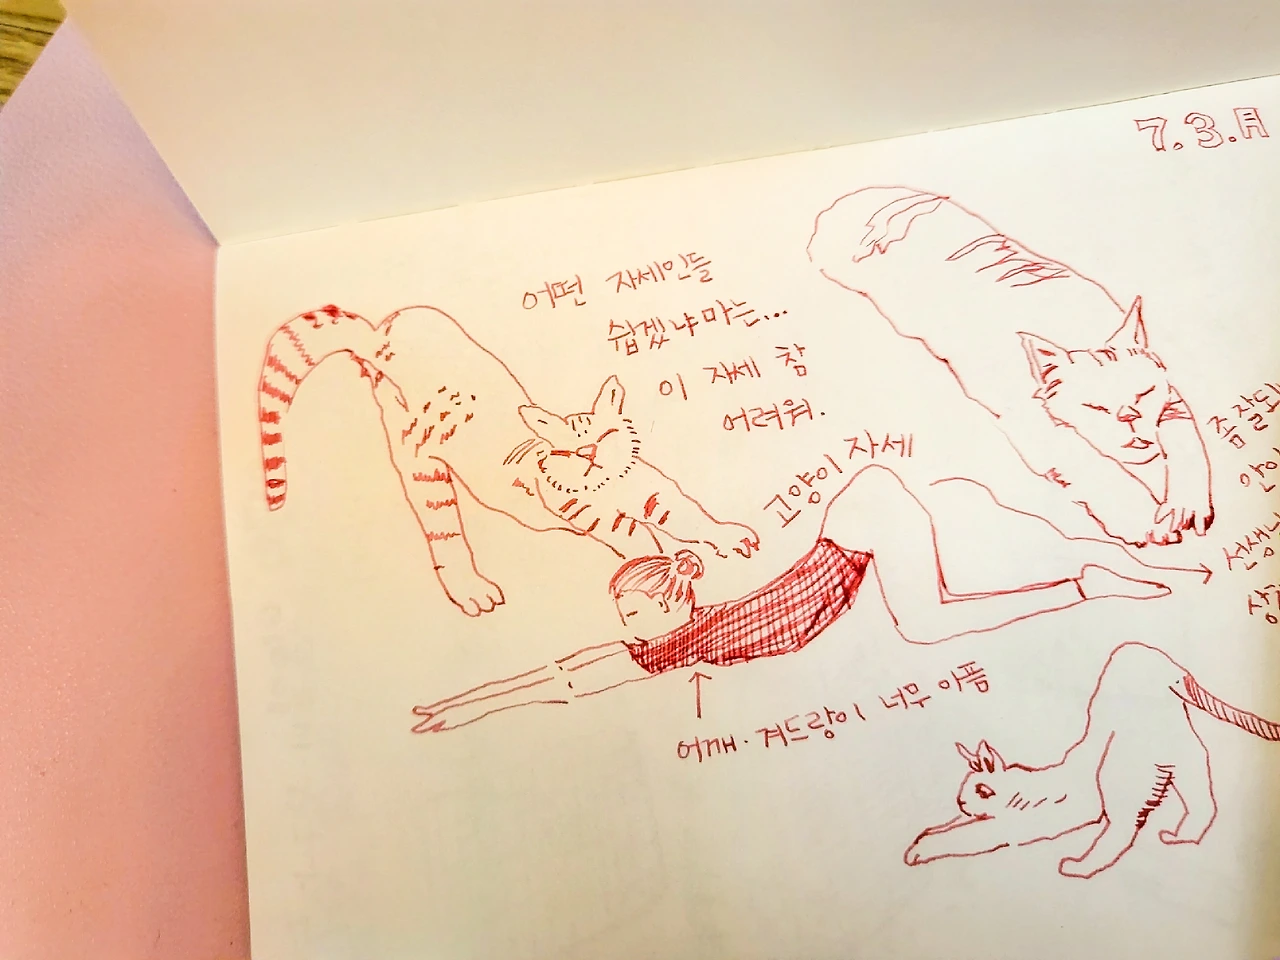 7.3.月
어떤 자세인들
쉽겠냐마는...
이 자세 참
어려워.
고양이 자세
어깨·겨드랑이 너무 아픔
좀 잘되
선생님